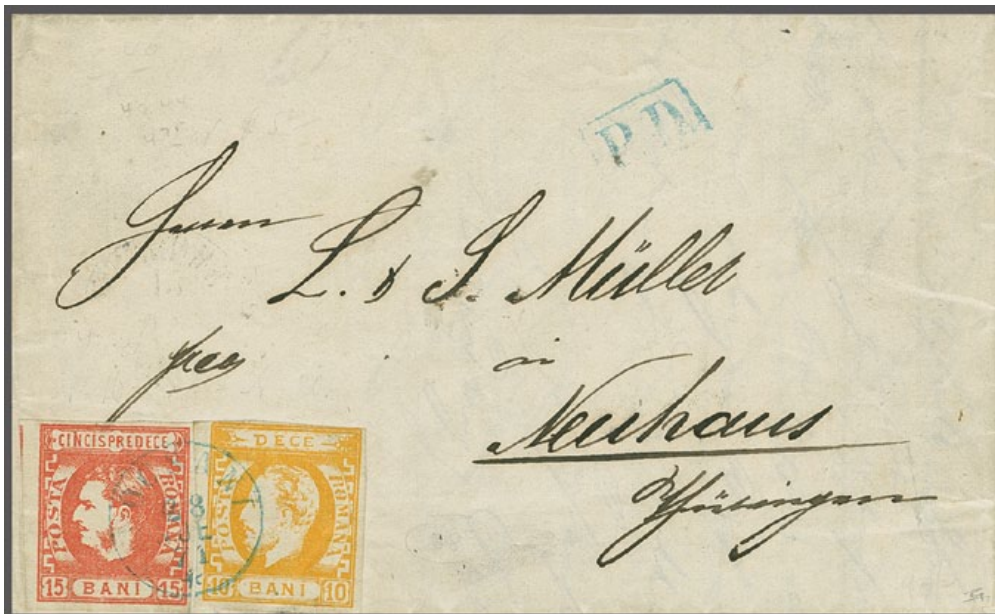 P.D.
Herrn
L. & S. Müller
in
Neuhaus
Thüringen
CINCISPREDECE
POSTA
ROMANA
15 BANI 15
DECE
POSTA
ROMANA
10 BANI 10